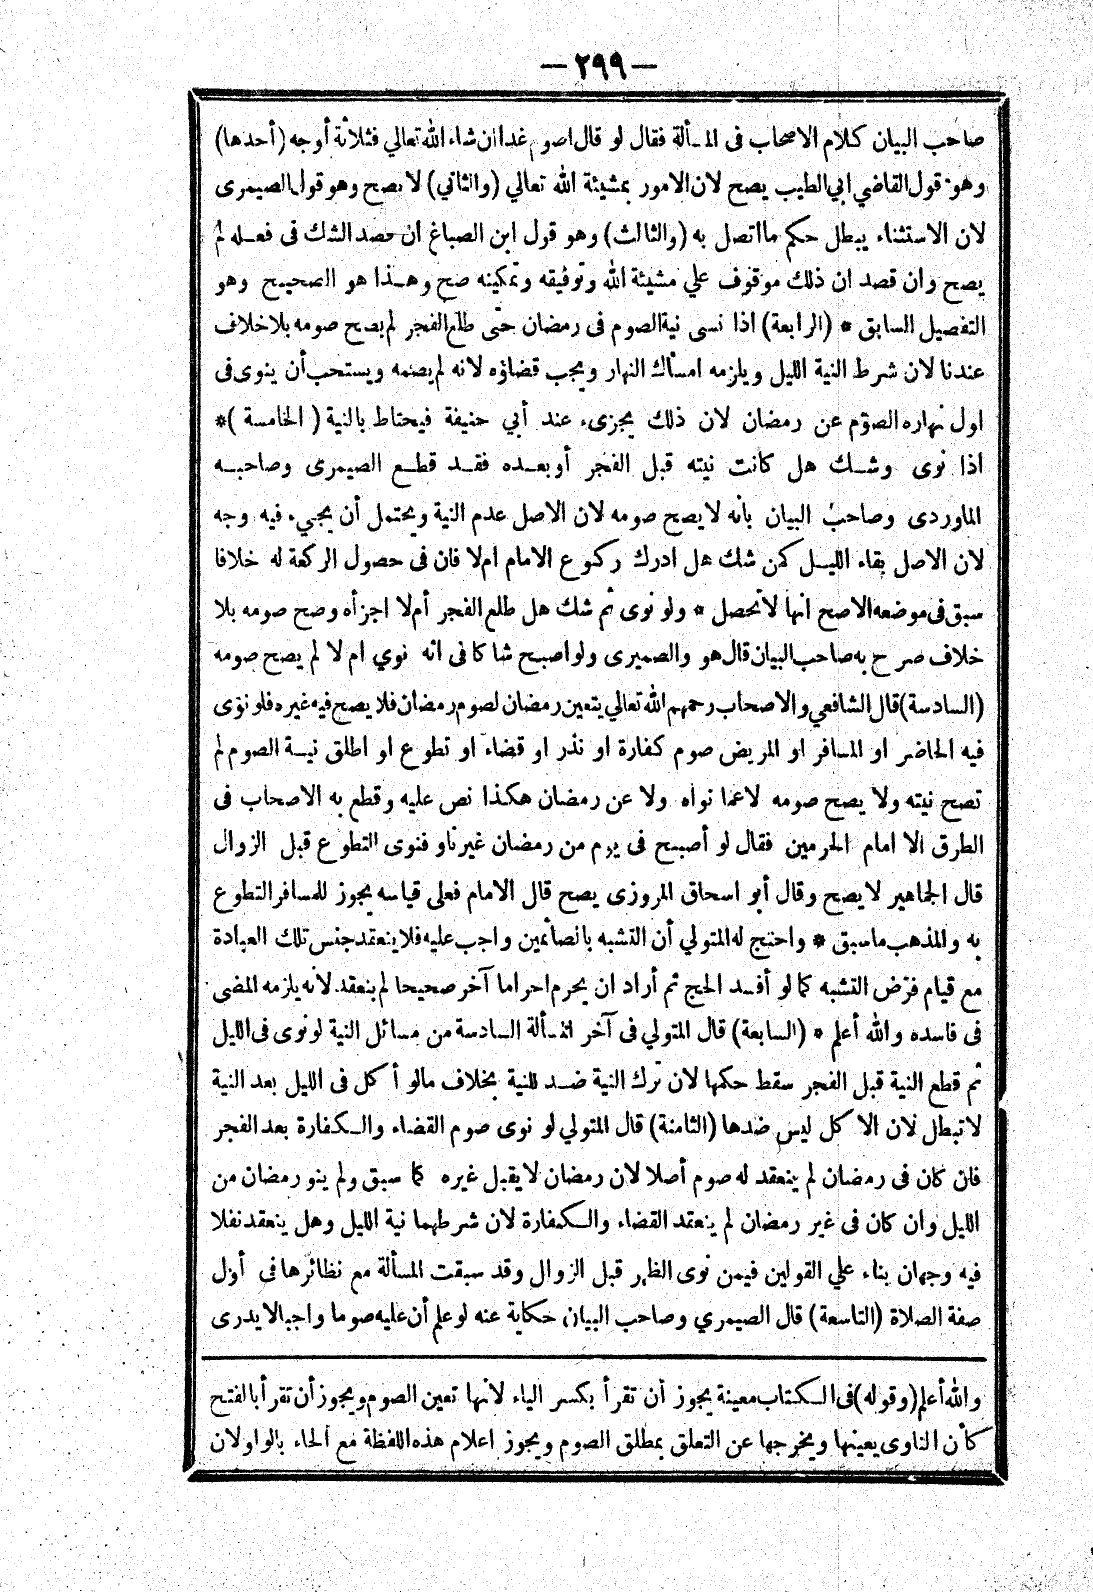 — ٢٩٩ —
صاحب البيان كلام الاصحاب فى المسألة فقال لو قال اصوم غدا ان شاء الله تعالي فثلاثة أوجه (أحدها)
وهو قول القاضي ابي الطيب يصح لان الامور بمشيئة الله تعالي (والثاني) لا يصح وهو قول الصيمرى
لان الاستثناء يبطل حكم ما اتصل به (والثالث) وهو قول ابن الصباغ ان قصد الشك فى فعله لم
يصح وان قصد ان ذلك موقوف علي مشيئة الله وتوفيقه وتمكينه صح وهذا هو الصحيح وهو
التفصيل السابق * (الرابعة) اذا نسى نية الصوم فى رمضان حتى طلع الفجر لم يصح صومه بلا خلاف
عندنا لان شرط النية الليل ويلزمه امساك النهار ويجب قضاؤه لانه لم يصمه ويستحب أن ينوى فى
اول نهاره الصوم عن رمضان لان ذلك يجزىء عند أبي حنيفة فيحتاط بالنية (الخامسة)*
اذا نوى وشك هل كانت نيته قبل الفجر أو بعده فقد قطع الصيمرى وصاحبه
الماوردى وصاحب البيان بانه لا يصح صومه لان الاصل عدم النية ويحتمل أن يجيء فيه وجه
لان الاصل بقاء الليل كمن شك هل ادرك ركوع الامام ام لا فان فى حصول الركعة له خلافا
سبق فى موضعه الاصح انها لا تحصل * ولو نوى ثم شك هل طلع الفجر أم لا اجزأه وصح صومه بلا
خلاف صرح به صاحب البيان قال هو والصميرى ولو اصبح شاكا فى انه نوي ام لا لم يصح صومه
(السادسة) قال الشافعي والاصحاب رحمهم الله تعالي يتعين رمضان لصوم رمضان فلا يصح فيه غيره فلو نوى
فيه الحاضر او المسافر او المريض صوم كفارة او نذر او قضاء او تطوع او اطلق نية الصوم لم
تصح نيته ولا يصح صومه لا عما نواه ولا عن رمضان هكذا نص عليه وقطع به الاصحاب فى
الطرق الا امام الحرمين فقال لو أصبح فى يوم من رمضان غير ناو فنوى التطوع قبل الزوال
قال الجماهير لا يصح وقال أبو اسحاق المروزى يصح قال الامام فعلى قياسه يجوز للمسافر التطوع
به والمذهب ما سبق * واحتج له المتولي أن التشبه بالصائمين واجب عليه فلا ينعقد جنس تلك العبادة
مع قيام فرض التشبه كما لو أفسد الحج ثم أراد ان يحرم احراما آخر صحيحا لم ينعقد لانه يلزمه المضى
فى فاسده والله أعلم * (السابعة) قال المتولي فى آخر المسألة السادسة من مسائل النية لو نوى فى الليل
ثم قطع النية قبل الفجر سقط حكمها لان ترك النية ضد للنية بخلاف مالو أكل فى الليل بعد النية
لا تبطل لان الاكل ليس ضدها (الثامنة) قال المتولي لو نوى صوم القضاء والكفارة بعد الفجر
فان كان فى رمضان لم ينعقد له صوم أصلا لان رمضان لا يقبل غيره كما سبق ولم ينو رمضان من
الليل وان كان فى غير رمضان لم ينعقد القضاء والكفارة لان شرطهما نية الليل وهل ينعقد نفلا
فيه وجهان بناء علي القولين فيمن نوى الظهر قبل الزوال وقد سبقت المسألة مع نظائرها فى أول
صفة الصلاة (التاسعة) قال الصيمري وصاحب البيان حكاية عنه لو علم أن عليه صوما واجبا لا يدرى
والله أعلم (وقوله) فى الكتاب معينة يجوز أن تقرأ بكسر الياء لانها تعين الصوم ويجوز أن تقرأ بالفتح
كأن الناوى يعينها ويخرجها عن التعلق بمطلق الصوم ويجوز اعلام هذه اللفظة مع الحاء بالواو لان